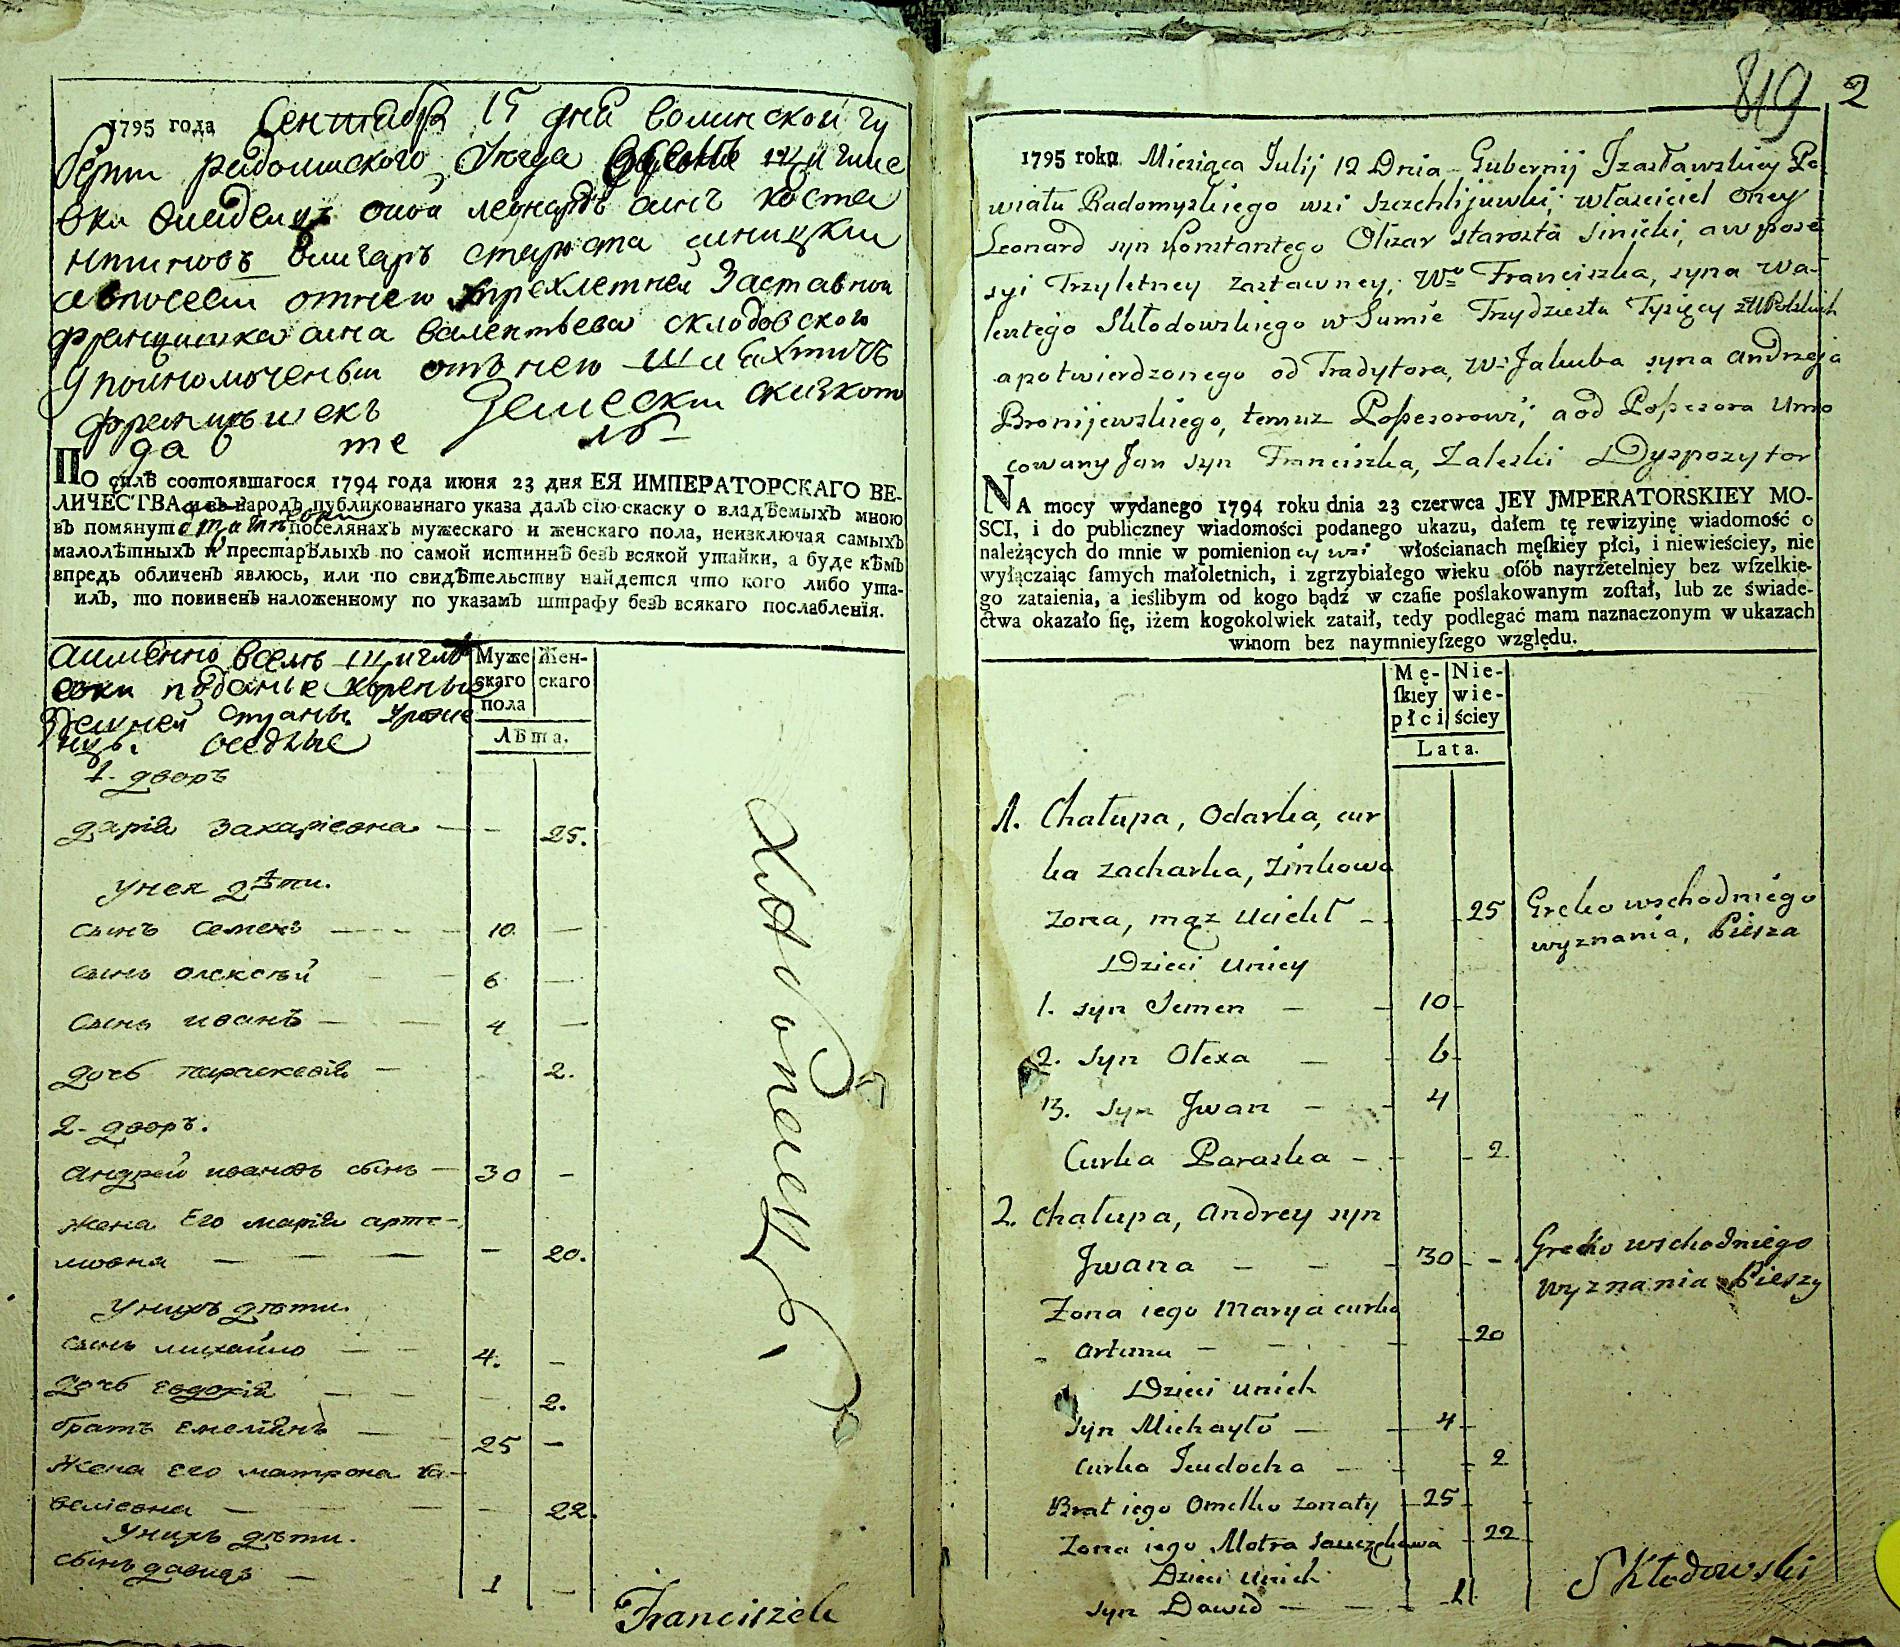 1795 года Сентября 15 дня волинской гу
берни радомиского уезда
вки владелец оной леонардъ синъ коста
нтиновъ олизаръ староста синицкии
авпосесии отнего трехлетней Заставнои
францишка сина валентьева склодовского
уполномоченыи отънего шляхтичъ
францишекъ Zемески скизкою
да те лъ
По силѣ состоявшагося 1794 года июня 23 дня ЕЯ ИМПЕРАТОРСКАГО ВЕ-
ЛИЧЕСТВА и въ народъ публикованнаго указа далъ сію скаску о владѣемыхъ мною
въ помянутой поселянахъ мужескаго и женскаго пола, неизключая самыхъ
малолѣтныхъ и престарѣлыхъ по самой истиннѣ безъ всякой утайки, а буде кѣмъ
впредь обличенъ явлюсь, или по свидѣтельству найдется что кого либо ута-
илъ, то повиненъ наложенному по указамъ штрафу безъ всякаго послабленія.
аименно всели
поданые
Зdешней страны уроже
нцы. оседлые
Муже
скаго
пола
Жен-
скаго
Лѣта.
1. дворъ
дарія захаріевна — — 25.
унея дѣти.
сынъ семенъ — — 10. —
сынъ олексѣй — 6 —
сынъ иванъ — — 4 —
дочь параскевія — 2.
2. дворъ.
андрей ивановъ сынъ — 30 —
жена Его марія арте-
мовна — — — — 20.
унихъ дѣти.
сынъ михайло — — 4. —
дочь евдокія — — — 2.
братъ емеліянъ — — 25 —
жена его матрона са-
веліевна — — — — 22.
унихъ дѣти.
сынъ давидъ — 1 —
Хитоненцъ
Franciszek
819 2
1795 roku Miesiąca Julij 12 Dnia Gubernij Jzasławskiey Po
wiatu Radomyskiego wsi Szczehlijuwki; właściciel oney
Leonard syn Konstantego Olizar starosta Sinicki, a w posse
syi Trzyletney zastawney, Wo Franciszka, syna Wa-
lentego Skłodowskiego w Sumie Trzydziestu Tysięcy zł Polskich
a potwierdzonego od Tradytora, W. Jakuba syna Andrzeja
Bronijewskiego, temuz Possesorowi; a od Possesora Umo
cowany Jan syn Franciszka, Zaleski Dyspozytor
NA mocy wydanego 1794 roku dnia 23 czerwca JEY JMPERATORSKIEY MO-
SCI, i do publiczney wiadomości podanego ukazu, dałem tę rewizyinę wiadomość o
należących do mnie w pomienioney wsi włościanach męſkiey płci, i niewieściey, nie
wyłączaiąc ſamych małoletnich, i zgrzybiałego wieku oſób nayrzetelniey bez wſzelkie-
go zataienia, a ieślibym od kogo bądź w czaſie poślakowanym zoſtał, lub ze świade-
ctwa okazało ſię, iżem kogokolwiek zataił, tedy podlegać mam naznaczonym w ukazach
winom bez naymnieyſzego względu.
Mę-
ſkiey
płci
Nie-
wie-
ściey
Lata.
1. Chałupa, Odarka, cur
ka Zacharka, Zinkowa
Zona, mąz uciekł — 25 Greko wschodniego
wyznania, Piesza
Dzieci uniey
1. syn Semen — 10
2. syn Olexa — 6
3. syn Jwan — 4
Curka Paraska — 2
2. Chałupa, Andrey syn
Jwana — — 30 — Greko wschodniego
wyznania Pieszy
Zona iego Marya curka
Artima — 20
Dzieci unich
syn Michayło — 4
curka Jeudocha — 2
Brat iego Omelko zonaty 25
Zona iego Motra 22
Dzieci unich
syn Dawid — — 1
Skłodowski